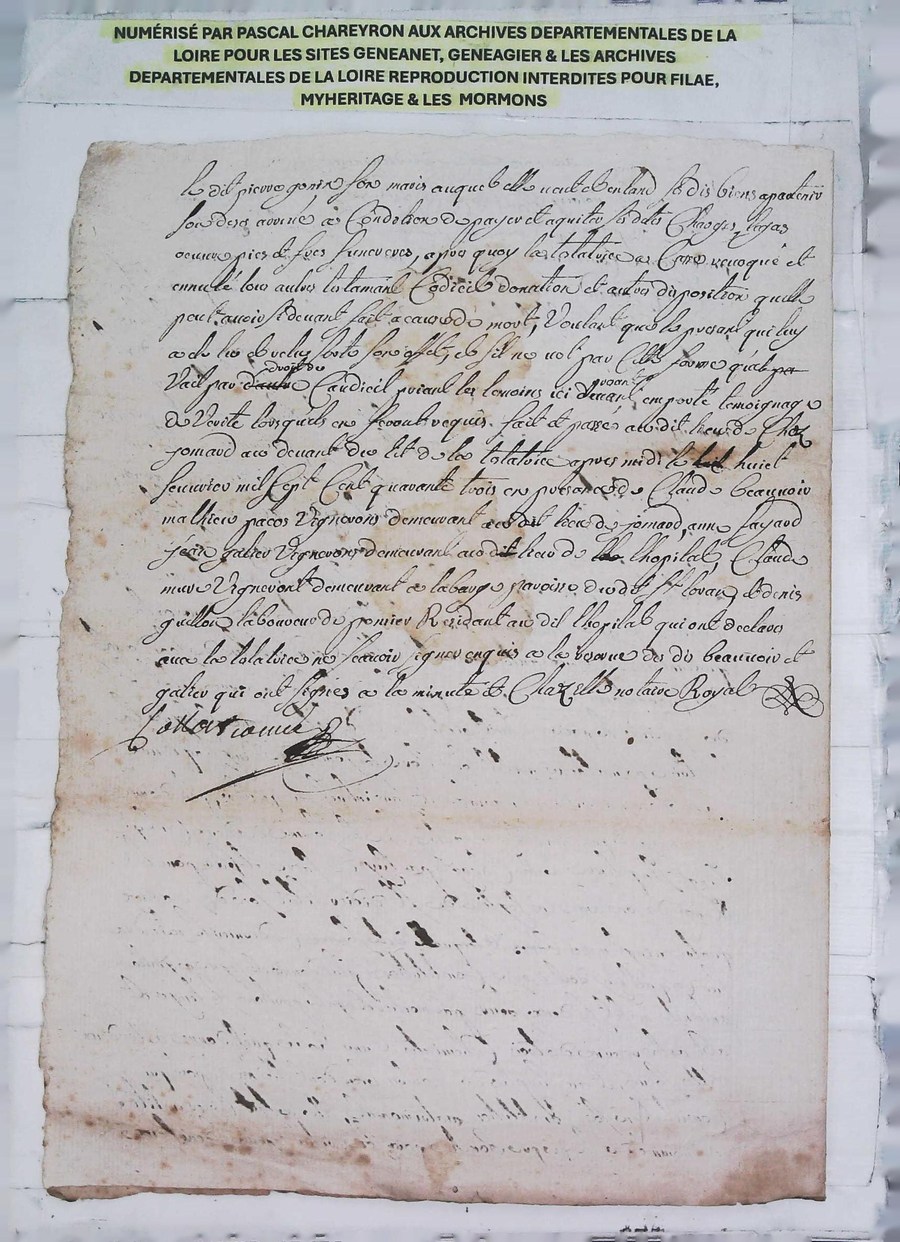 NUMÉRISÉ PAR PASCAL CHAREYRON AUX ARCHIVES DEPARTEMENTALES DE LA
LOIRE POUR LES SITES GENEANET, GENEAGIER & LES ARCHIVES
DEPARTEMENTALES DE LA LOIRE REPRODUCTION INTERDITES POUR FILAE,
MYHERITAGE & LES MORMONS
le dit pierre genin son maris auquel elle veut et entand sesdis biens apartenir
son deces arrivé a Condition de payer et aquiter sesdits Charges, legas
oeuvre pies et fres funereres, apres quoy la testatrice a Cassé revoqué et
ennullé tous autres testamant Codicil donnation et autre disposition quelle
peut avoir si devant fait a cause de mort, Voulant que le presant qui luy
a ete lu et relus sorte son effet, et sil ne vol par Cette forme
Vail par droit de Caudicil priant les temoins ici devant en porté temoignage
de Verité lorsquils en seront requis. fait et passé audit lieu de Chez
jomard au devant du lit de la testatrice apres midi le huict
feuvrier mil sept Cent quarante trois en presance de Claude beauvoir
mathieu pacos Vignerons demeurant audit lieu de jomard, anne fayard
jean galier Vignerons demeurant audit lieu de lhopital, Claude
mure Vigneront demeurant a labarge paroisse dudit St lorand et denis
guillon laboureur de pomier Residant au dit lhopital qui ont declaré
avec la testatrice ne scavoir signer enquis a la reserve des dis beauvoir et
galier qui ont signés a la minute et Chazelle notaire Royal